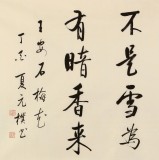 不是雪为
有暗香来
王安石梅花
丁亥夏元樸书